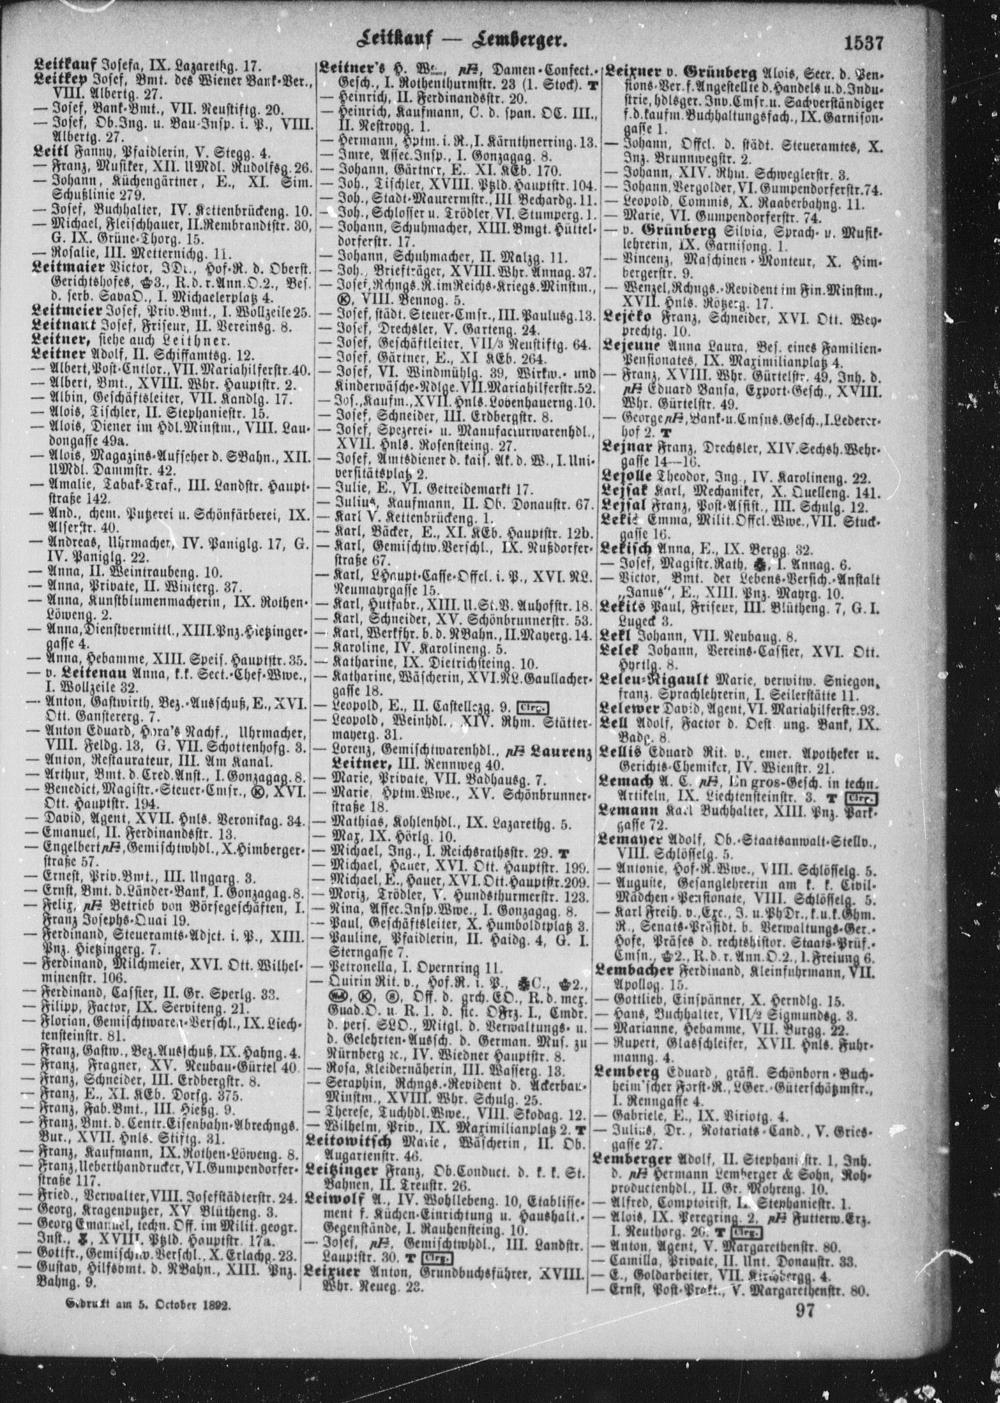 Leitkauf — Lemberger.
1537
Leitkauf Josefa, IX. Lazarethg. 17.
Leitkep Josef, Bmt. des Wiener Bank-Ver.,
VIII. Albertg. 27.
— Josef, Bank-Bmt., VII. Neustiftg. 20.
— Josef, Ob.Ing. u. Bau-Insp. i. P., VIII.
Albertg. 27.
Leitl Fanny, Pfaidlerin, V. Stegg. 4.
— Franz, Musiker, XII. UMdl. Rudolfsg. 26.
— Johann, Küchengärtner, E., XI. Sim.
Schußlinie 279.
— Josef, Buchhalter, IV. Kettenbrückeng. 10.
— Michael, Fleischhauer, II. Rembrandtstr. 30,
G. IX. Grüne-Thorg. 15.
— Rosalie, III. Metternichg. 11.
Leitmaier Victor, JDr., Hof-R. d. Oberst.
Gerichtshofes, 3., R. d. r. Ann.O.2., Bes.
d. serb. SavaO., I. Michaelerplatz 4.
Leitmeier Josef, Priv.Bmt., I. Wollzeile 25.
Leitnant Josef, Friseur, II. Vereinsg. 8.
Leitner, siehe auch Leithner.
Leitner Adolf, II. Schiffamtsg. 12.
— Albert, Post-Contlor., VII. Mariahilferstr. 40.
— Albert, Bmt., XVIII. Whr. Hauptstr. 2.
— Albin, Geschäftsleiter, VII. Kandlg. 17.
— Alois, Tischler, II. Stephaniestr. 15.
— Alois, Diener im Hdl.Minstm., VIII. Lau-
dongasse 49a.
— Alois, Magazins-Aufseher d. SBahn., XII.
UMdl. Dammstr. 42.
— Amalie, Tabak-Traf., III. Landstr. Haupt-
straße 142.
— And., chem. Putzerei u. Schönfärberei, IX.
Alserstr. 40.
— Andreas, Uhrmacher, IV. Paniglg. 17, G.
IV. Paniglg. 22.
— Anna, II. Weintraubeng. 10.
— Anna, Private, II. Winterg. 37.
— Anna, Kunstblumenmacherin, IX. Rothen-
Löweng. 2.
— Anna, Dienstvermittl., XIII. Pnz. Hietzinger-
gasse 4.
— Anna, Hebamme, XIII. Speis. Hauptstr. 35.
— v. Leitenau Anna, k.k. Sect.-Chef-Wwe.,
I. Wollzeile 32.
— Anton, Gastwirth, Bez.-Ausschuß, E., XVI.
Ott. Gansterерg. 7.
— Anton Eduard, Hora's Nachf., Uhrmacher,
VIII. Feldg. 13, G. VII. Schottenhofg. 3.
— Anton, Restaurateur, III. Am Kanal.
— Arthur, Bmt. d. Cred.Anst., I. Gonzagag. 8.
— Benedict, Magistr.-Steuer-Cmsr., Ⓚ, XVI.
Ott. Hauptstr. 194.
— David, Agent, XVII. Hnls. Veronikag. 34.
— Emanuel, II. Ferdinandsstr. 13.
— Engelbert, Gemischtwhdl., X. Himberger-
straße 57.
— Ernest, Priv.Bmt., III. Ungarg. 3.
— Ernst, Bmt. d. Länder-Bank, I. Gonzagag. 8.
— Felix, Betrieb von Börsegeschäften, I.
Franz Josephs-Quai 19.
— Ferdinand, Steueramts-Adjct. i. P., XIII.
Pnz. Hietzingerg. 7.
— Ferdinand, Milchmeier, XVI. Ott. Wilhel-
minenstr. 106.
— Ferdinand, Cassier, II. Gr. Sperlg. 33.
— Filipp, Factor, IX. Serviteng. 21.
— Florian, Gemischtwaren-Verschl., IX. Liech-
tensteinstr. 81.
— Franz, Gastw., Bez.Ausschuß, IX. Hahng. 4.
— Franz, Fragner, XV. Neubau-Gürtel 40.
— Franz, Schneider, III. Erdbergstr. 8.
— Franz, E., XI. KEb. Dorfg. 375.
— Franz, Fab.Bmt., III. Hießg. 9.
— Franz, Bmt. d. Centr.Eisenbahn-Abrechngs.
Bur., XVII. Hnls. Stiftg. 31.
— Franz, Kaufmann, IX. Rothen-Löweng. 8.
— Franz, Ueberthandrucker, VI. Gumpendorfer-
straße 117.
— Fried., Verwalter, VIII. Josefstädterstr. 24.
— Georg, Kragenputzer, XV. Blütheng. 3.
— Georg Emanuel, techn. Off. im Milit. geogr.
Inst., XVIII. Ptzld. Hauptstr. 17a.
— Gottfr., Gemischtw.Verschl., X. Erlachg. 23.
— Gustav, Hilfsbmt. d. NBahn., XIII. Pnz.
Bahng. 9.
Leitner's H. We., Damen-Confect.-
Gesch., I. Rothenthurmstr. 23 (1. Stock). T
— Heinrich, II. Ferdinandsstr. 20.
— Heinrich, Kaufmann, C. d. span. OC. III.,
II. Nestroyg. 1.
— Hermann, Hptm. i. R., I. Kärnthnerring. 13.
— Imre, Assec.Insp., I. Gonzagag. 8.
— Johann, Gärtner, E., XI. KEb. 170.
— Joh., Tischler, XVIII. Ptzld. Hauptstr. 104.
— Joh., Stadt-Maurermstr., III. Bechardg. 11.
— Joh., Schlosser u. Trödler, VI. Stumperg. 1.
— Johann, Schuhmacher, XIII. Bmgt. Hüttel-
dorferstr. 17.
— Johann, Schuhmacher, II. Malzg. 11.
— Joh., Briefträger, XVIII. Whr. Annag. 37.
— Josef, Rchngs.R. im Reichs-Kriegs.Minstm.,
Ⓚ, VIII. Bennog. 5.
— Josef, städt. Steuer-Cmsr., III. Paulusg. 13.
— Josef, Drechsler, V. Garteng. 24.
— Josef, Geschäftleiter, VII/3 Neustiftg. 64.
— Josef, Gärtner, E., XI KEb. 264.
— Josef, VI. Windmühlg. 39, Wirkw.- und
Kinderwäsche-Ndlge. VII. Mariahilferstr. 52.
— Jos., Kaufm., XVII. Hnls. Lobenhauerng. 10.
— Josef, Schneider, III. Erdbergstr. 8.
— Josef, Spezerei- u. Manufacturwarenhdl.,
XVII. Hnls. Rosensteing. 27.
— Josef, Amtsdiener d. kais. Ak. d. W., I. Uni-
versitätsplatz 2.
— Julie, E., VI. Getreidemarkt 17.
— Julius, Kaufmann, II. Ob. Donaustr. 67.
— Karl V. Kettenbrückeng. 1.
— Karl, Bäcker, E., XI. KEb. Hauptstr. 12b.
— Karl, Gemischtw.Verschl., IX. Nußdorfer-
straße 67.
— Karl, LHaupt-Casse-Offcl. i. P., XVI. NL.
Neumayrgasse 15.
— Karl, Hutfabr., XIII. U.St.V. Auhofstr. 18.
— Karl, Schneider, XV. Schönbrunnerstr. 53.
— Karl, Werkfhr. b. d. NBahn., II. Mayerg. 14.
— Karoline, IV. Karolineng. 5.
— Katharine, IX. Dietrichsteing. 10.
— Katharine, Wäscherin, XVI. NL. Gaullacher-
gasse 18.
— Leopold, E., II. Castellezg. 9. Clrg.
— Leopold, Weinhdl., XIV. Rhm. Stätter-
mayerg. 31.
— Lorenz, Gemischtwarenhdl., Laurenz
Leitner, III. Rennweg 40.
— Marie, Private, VII. Badhausg. 7.
— Marie, Hptm.Wwe., XV. Schönbrunner-
straße 18.
— Mathias, Kohlenhdl., IX. Lazarethg. 5.
— Max, IX. Hörlg. 10.
— Michael, Ing., I. Reichsrathsstr. 29. T
— Michael, Hauer, XVI. Ott. Hauptstr. 199.
— Michael, E., Hauer, XVI. Ott. Hauptstr. 209.
— Moriz, Trödler, V. Hundsthurmerstr. 123.
— Nina, Assec.Insp.Wwe., I. Gonzagag. 8.
— Paul, Geschäftsleiter, X. Humboldtplatz 3.
— Pauline, Pfaidlerin, II. Haidg. 4, G. I.
Sterngasse 7.
— Petronella, I. Opernring 11.
— Quirin Rit. v., Hof.R. i. P., C., 2.,
Off. d. grch. EO., R. d. mex.
Guad.O. u. R. 1. d. sic. OFrz. I., Cmdr.
d. pers. SLO., Mitgl. d. Verwaltungs- u.
d. Gelehrten-Aussch. d. German. Mus. zu
Nürnberg ec., IV. Wiedner Hauptstr. 8.
— Rosa, Kleidernäherin, III. Wasserg. 13.
— Seraphin, Rchngs.-Revident d. Ackerbau-
Minstm., XVIII. Whr. Schulg. 25.
— Therese, Tuchhdl.Wwe., VIII. Skodag. 12.
— Wilhelm, Priv., IX. Maximilianplatz 2. T
Leitowitsch Marie, Wäscherin, II. Ob.
Augartenstr. 46.
Leitzinger Franz, Ob.Conduct. d. k. k. St.
Bahnen, II. Treustr. 26.
Leiwolf A., IV. Wohllebeng. 10, Etablisse-
ment f. Küchen-Einrichtung u. Haushalt.-
Gegenstände, I. Rauhensteing. 10.
— Josef, Gemischtwhdl., III. Landstr.
Hauptstr. 30. T Clrg.
Leixner Anton, Grundbuchsführer, XVIII.
Whr. Neueg. 23.
Leixner v. Grünberg Alois, Secr. d. Pen-
sions-Ver. f. Angestellte d. Handels u. d. Indu-
strie, hdlsger. Inv.Cmsr. u. Sachverständiger
f. d. kaufm. Buchhaltungsfach., IX. Garnison-
gasse 1.
— Johann, Offcl. d. städt. Steueramtes, X.
Inz. Brunnwegstr. 2.
— Johann, XIV. Rhm. Schweglerstr. 3.
— Johann, Vergolder, VI. Gumpendorferstr. 74.
— Leopold, Commis, X. Raaberbahng. 11.
— Marie, VI. Gumpendorferstr. 74.
— v. Grünberg Silvia, Sprach- u. Musik-
lehrerin, IX. Garnisong. 1.
— Vincenz, Maschinen-Monteur, X. Him-
bergerstr. 9.
— Wenzel, Rchngs.-Revident im Fin. Minstm.,
XVII. Hnls. Rötzerg. 17.
Lejčko Franz, Schneider, XVI. Ott. Wey-
prechtg. 10.
Lejeune Anna Laura, Bes. eines Familien-
Pensionates, IX. Maximilianplatz 4.
— Franz, XVIII. Whr. Gürtelstr. 49, Inh. d.
Eduard Bansa, Export-Gesch., XVIII.
Whr. Gürtelstr. 49.
— George, Bank-u. Cmsns.Gesch., I. Lederer-
hof 2. T
Lejnar Franz, Drechsler, XIV. Sechsh. Wehr-
gasse 14—16.
Lejolle Theodor, Ing., IV. Karolineng. 22.
Lejsak Karl, Mechaniker, X. Quelleng. 141.
Lejsal Franz, Post-Assist., III. Schulg. 12.
Lekić Emma, Milit.Offcl.Wwe., VII. Stuck-
gasse 16.
Lekisch Anna, E., IX. Bergg. 32.
— Josef, Magistr.Rath, I. Annag. 6.
— Victor, Bmt. der Lebens-Versich.-Anstalt
„Janus“, E., XIII. Pnz. Mayrg. 10.
Lekits Paul, Friseur, III. Blütheng. 7, G. I.
Lugeck 3.
Lekl Johann, VII. Neubaug. 8.
Lelek Johann, Vereins-Cassier, XVI. Ott.
Hyrtlg. 8.
Leleu-Rigault Marie, verwitw. Sniegon,
franz. Sprachlehrerin, I. Seilerstätte 11.
Lelewer David, Agent, VI. Mariahilferstr. 93.
Lell Adolf, Factor d. Oest. ung. Bank, IX.
Badg. 8.
Lellis Eduard Rit. v., emer. Apotheker u.
Gerichts-Chemiker, IV. Wienstr. 21.
Lemach A. C., En gros-Gesch. in techn.
Artikeln, IX. Liechtensteinstr. 3. T Clrg.
Lemann Karl Buchhalter, XIII. Pnz. Park-
gasse 72.
Lemayer Adolf, Ob.-Staatsanwalt-Stellv.,
VIII. Schlösselg. 5.
— Antonie, Hof-R.Wwe., VIII. Schlösselg. 5.
— Auguste, Gesanglehrerin am k. k. Civil-
Mädchen-Pensionate, VIII. Schlösselg. 5.
— Karl Freih. v., Exc., J. u. PhDr., k. u. k. Ghm.
R., Senats-Präsidt. b. Verwaltungs-Ger.-
Hofe, Präses d. rechtshistor. Staats-Prüf.-
Cmsn., 2., R. d. r. Ann.O.2., I. Freiung 6.
Lembacher Ferdinand, Kleinfuhrmann, VII.
Apollog. 15.
— Gottlieb, Einspänner, X. Herndlg. 15.
— Hans, Buchhalter, VII/2 Sigmundsg. 3.
— Marianne, Hebamme, VII. Burgg. 22.
— Rupert, Glasschleifer, XVII. Hnls. Fuhr-
manng. 4.
Lemberg Eduard, gräfl. Schönborn-Buch-
heim'scher Forst-R., LGer.-Güterschätzmstr.,
I. Renngasse 4.
— Gabriele, E., IX. Viriotg. 4.
— Julius, Dr., Notariats-Cand., V. Gries-
gasse 27.
Lemberger Adolf, II. Stephaniestr. 1, Inh.
d. Hermann Lemberger & Sohn, Roh-
productenhdl., II. Gr. Mohreng. 10.
— Alfred, Comptoirist, II. Stephaniestr. 1.
— Alois, IX. Peregring. 2, Futterw.Erz.
I. Neuthorg. 20. T Clrg.
— Anton, Agent, V. Margarethenstr. 80.
— Camilla, Private, II. Unt. Donaustr. 33.
— E., Goldarbeiter, VII. Kirchbergg. 4.
— Ernst, Post-Prakt., V. Margarethenstr. 80.
Gedruckt am 5. October 1892.
97